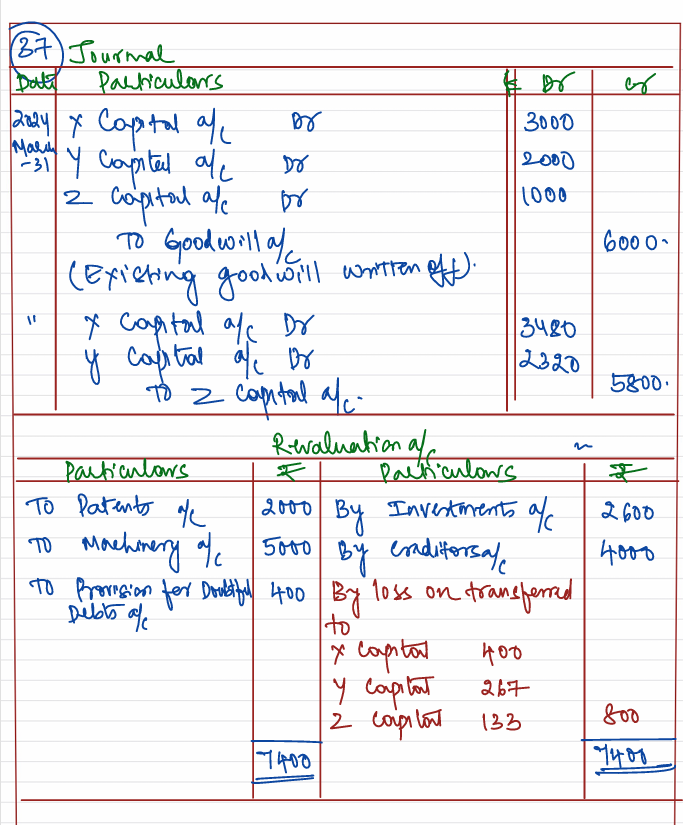 37 Journal
Date Particulars ₹ Dr Cr
2024 X Capital a/c Dr 3000
March Y Capital a/c Dr 2000
-31
Z Capital a/c Dr 1000
To Goodwill a/c 6000.
(Existing goodwill written off).
" X Capital a/c Dr 3480
Y Capital a/c Dr 2320
To Z Capital a/c. 5800.
Revaluation a/c
Particulars ₹ Particulars ₹
To Patents a/c 2000 By Investments a/c 2600
To Machinery a/c 5000 By Creditors a/c 4000
To Provision for Doubtful 400 By loss on transferred
Debts a/c to
X Capital 400
Y Capital 267
Z Capital 133 800
7400 7400